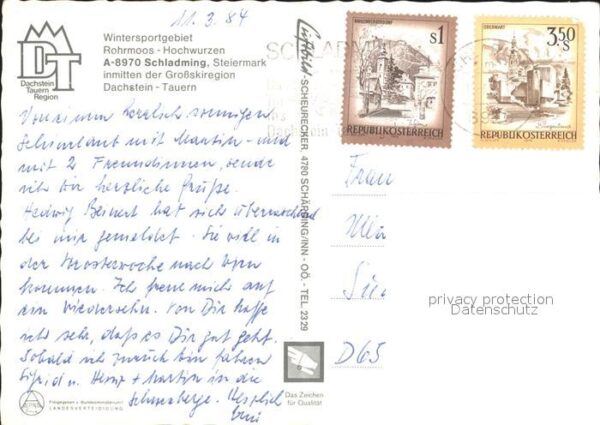 11.3.84
Wintersportgebiet
Rohrmoos - Hochwurzen
A-8970 Schladming, Steiermark
inmitten der Großskiregion
Dachstein - Tauern
DT
Dachstein
Tauern
Region
Von einem herrlich sonnigen
Schiurlaub mit Martin und
mit 2 Freundinnen, sende
ich Dir herzliche Grüße.
Hedwig hat sich überraschend
bei mir gemeldet. Sie will in
der Osterwoche nach
kommen. Ich freue mich auf
ein Wiedersehn. Von Dir hoffe
ich sehr, daß es Dir gut geht.
Sobald ich zurück bin fahren
Sigrid u. + Martin in die
Herzlich
Freigegeben v. Bundesministerium f.
LANDESVERTEIDIGUNG
Luftbild - SCHEURECKER, 4780 SCHÄRDING/INN - OÖ. - TEL. 2329
Das Zeichen
für Qualität
S1
REPUBLIK ÖSTERREICH
3.50 S
OBERWART
REPUBLIK ÖSTERREICH
SCHLADM
Dachstein
Frau
D 63
privacy protection
Datenschutz